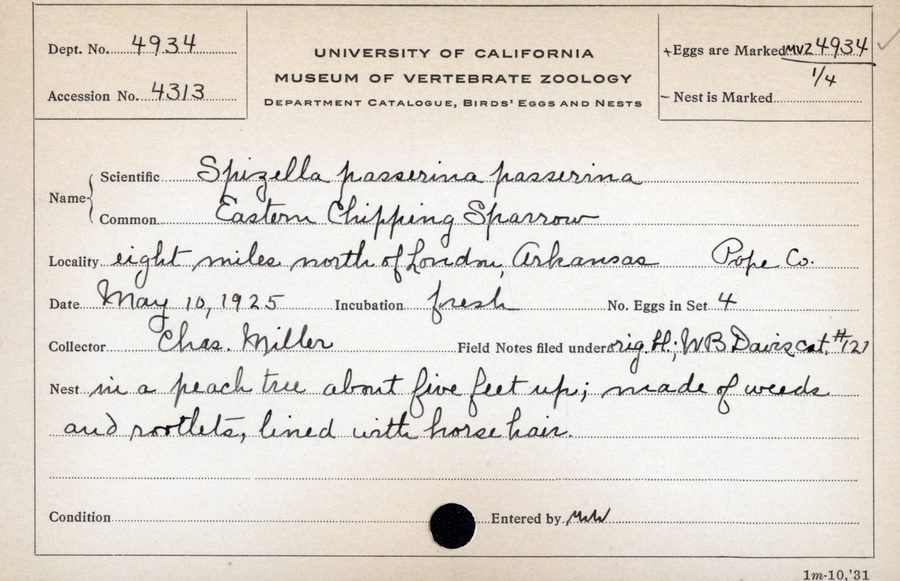 Dept. No. 4934
Accession No. 4313
UNIVERSITY OF CALIFORNIA
MUSEUM OF VERTEBRATE ZOOLOGY
DEPARTMENT CATALOGUE, BIRDS' EGGS AND NESTS
+Eggs are Marked MVZ 4934
1/4
- Nest is Marked
Name
Scientific Spizella passerina passerina
Common Eastern Chipping Sparrow
Locality eight miles north of London, Arkansas Pope Co.
Date May 10, 1925 Incubation fresh No. Eggs in Set 4
Collector Chas. Miller Field Notes filed under orig. W B Davis cat. #121
Nest in a peach tree about five feet up; made of weeds
and rootlets, lined with horse hair.
Condition Entered by
1m-10,'31